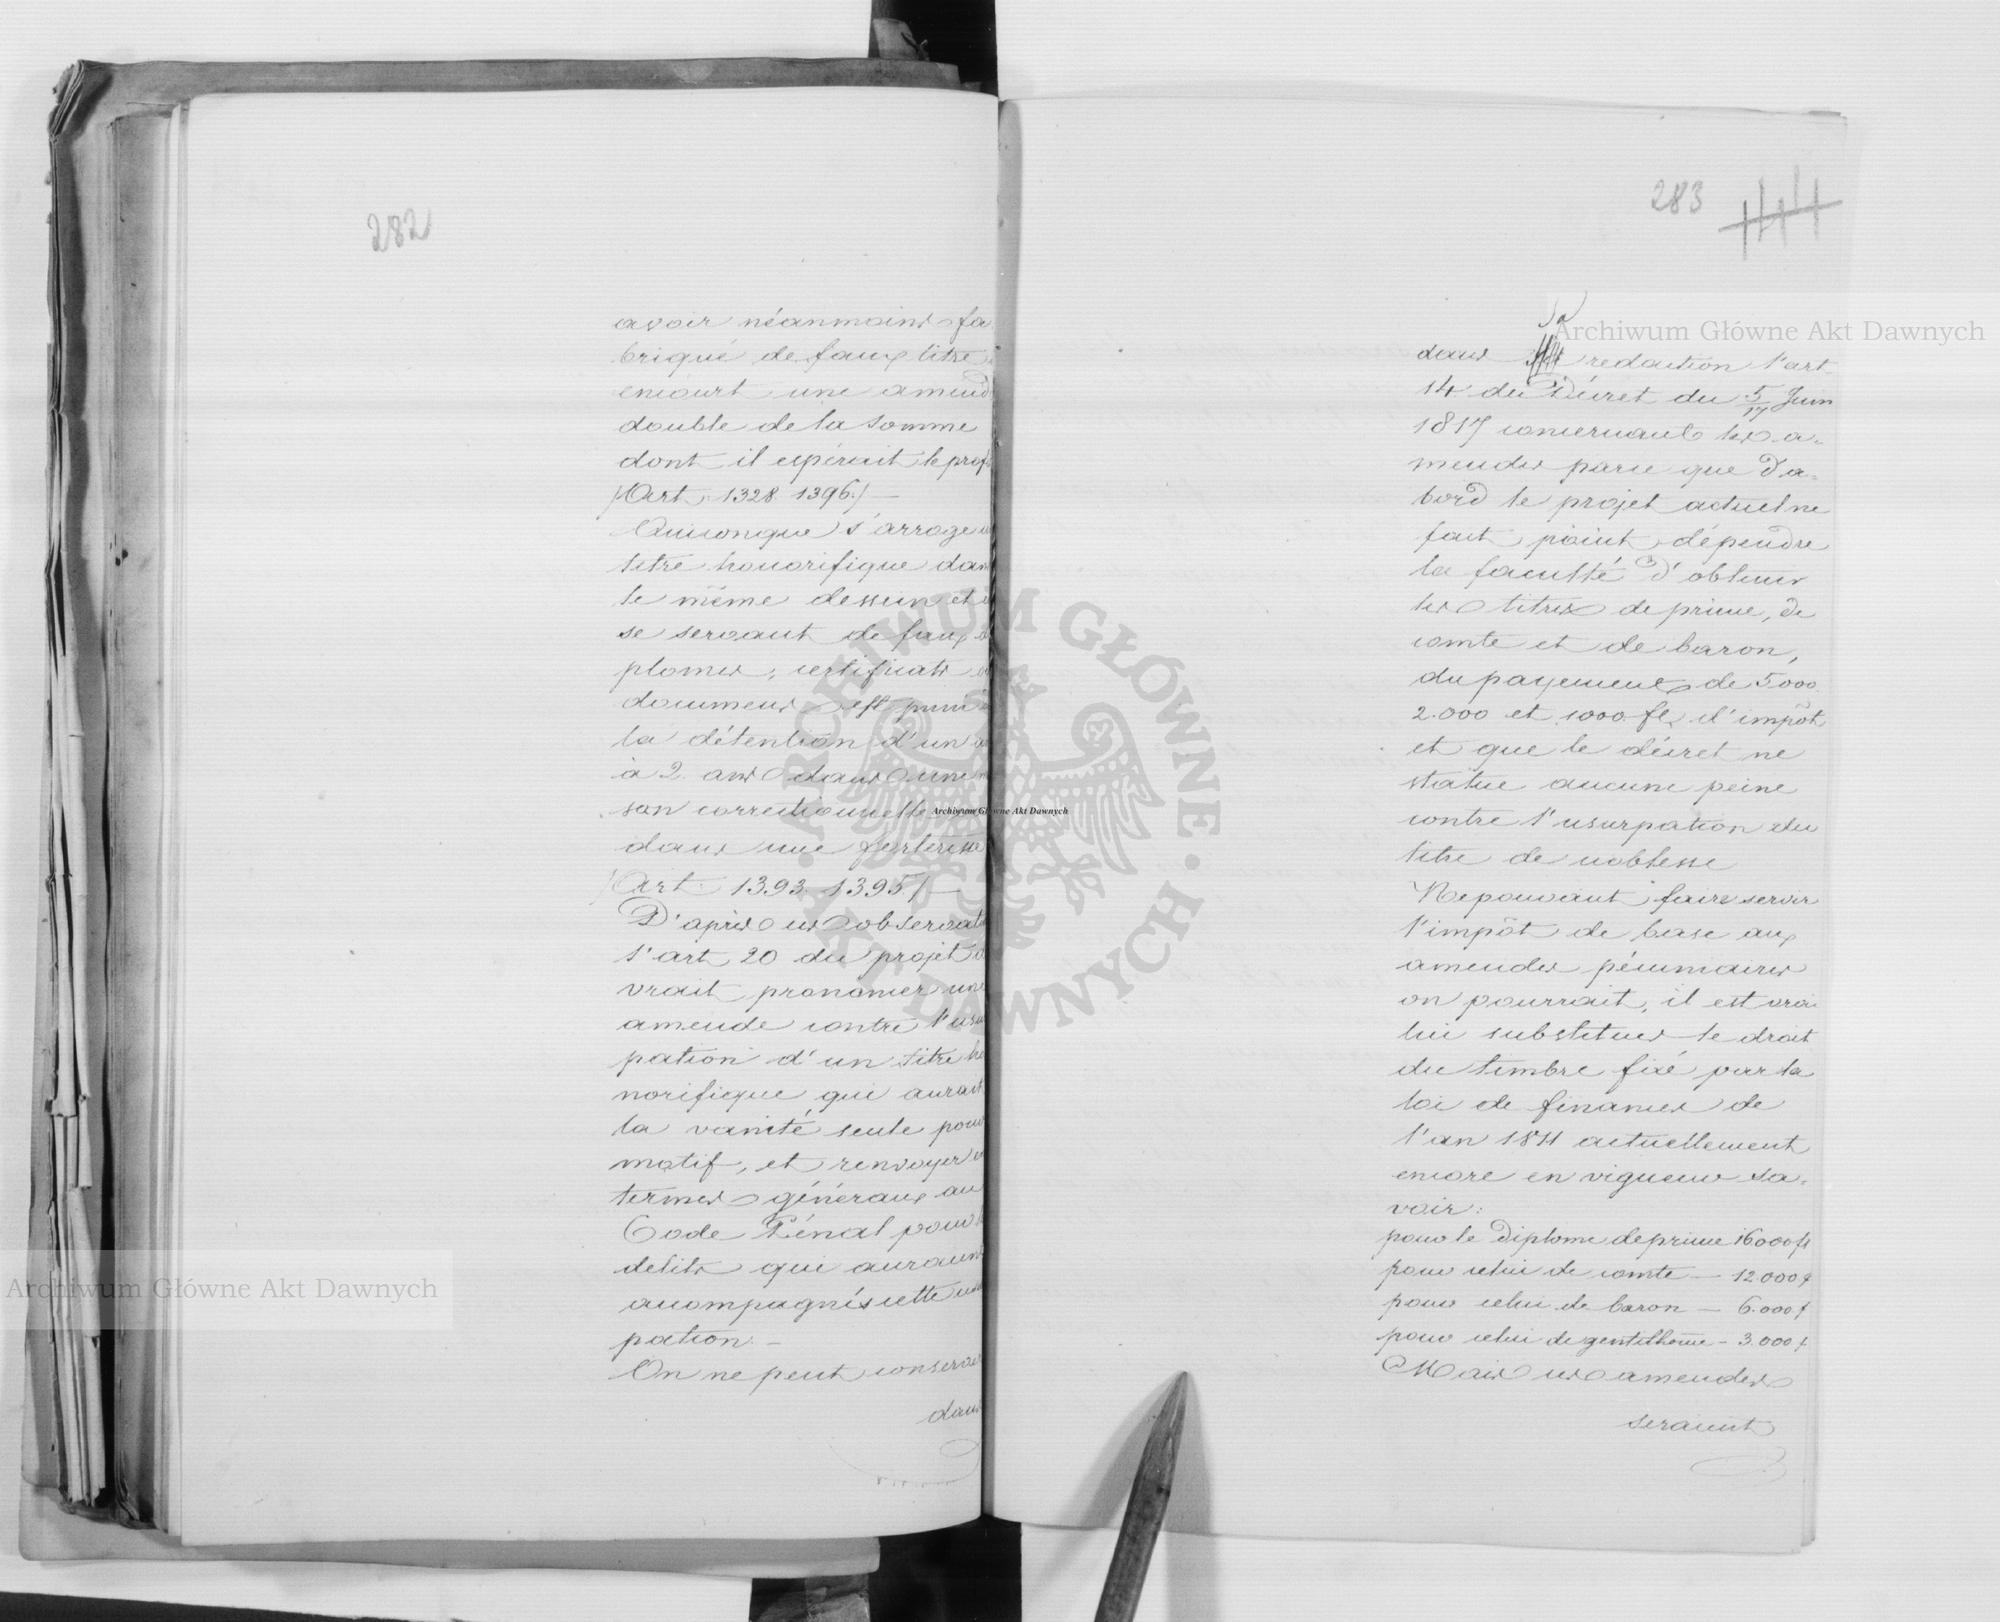 282
avoir néanmoins fa
briqué de faux titre
encourt une amend
double de la somme
dont il espérait le prof
/Art. 1328. 1396./ —
Quiconque s'arroge u
titre honorifique dan
le même dessein et
se servant de faux
plomes, certificats
documens est puni
la détention d'un
à 2. ans dans une
son correctionnelle
dans une forteresse
/Art. 1393. 1395/ —
D'après ces observat
l'art. 20 du projet d
vrait prononcer une
amende contre l'usu
pation d'un titre ho
norifique qui aurait
la vanité seule pour
motif, et renvoyer
termes généraux au
Code Pénal pour
delits qui auraient
accompagnés cette usu
pation. —
On ne peut conserver
dans
283
sa
dans redaction l'art.
14 du Décret du 5/17 Juin
1817 concernant les a-
mendes parce que d'a-
bord le projet actuel ne
fait point dépendre
la faculté d'obtenir
les titres de prince, de
comte et de baron,
du payement de 5000.
2.000 et 1000 fl. d'impôt
et que le décret ne
statue aucune peine
contre l'usurpation du
titre de noblesse
Ne pouvant faire servir
l'impôt de base aux
amendes pécuniaires
on pourrait, il est vrai
lui substituer le droit
du timbre fixé par la
loi de finances de
l'an 1811 actuellement
encore en vigueur sa-
voir:
pour le Diplome de prince 16000 fl
pour celui de comte — 12.000 f
pour celui de baron — 6.000 f
pour celui de gentilhome — 3.000 f.
Mais ces amendes
seraient
Archiwum Główne Akt Dawnych
Archiwum Główne Akt Dawnych
Archiwum Główne Akt Dawnych
· ARCHIWUM GŁÓWNE · AKT DAWNYCH